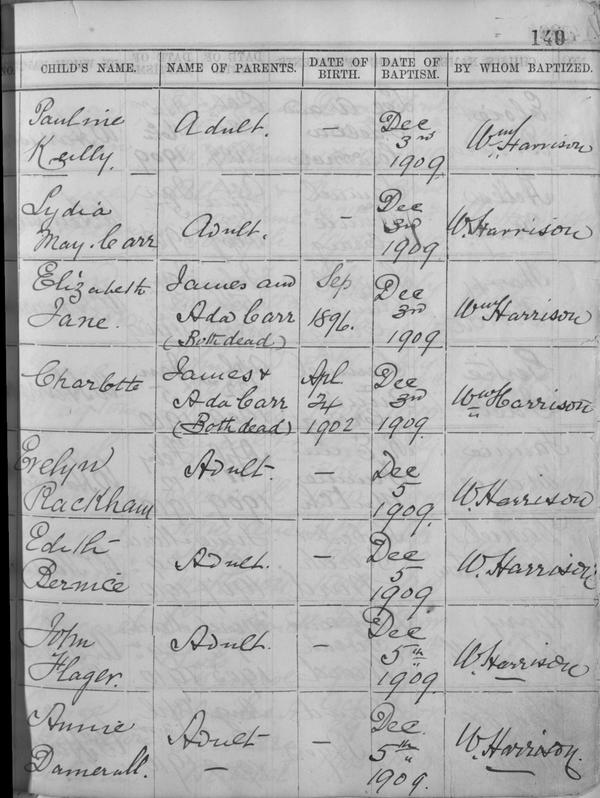 149
CHILD'S NAME. NAME OF PARENTS. DATE OF BIRTH. DATE OF BAPTISM. BY WHOM BAPTIZED.
Pauline Adult. — Dec
Keilly. 3rd Wm Harrison
1909
Lydia Dec
May. Carr Adult. — 3rd W. Harrison
1909
Elizabeth James and Sep Dec
Jane. Ada Carr 1896. 3rd Wm Harrison
(Both dead) 1909
Charlotte James & Apl Dec
Ada Carr 24 3rd Wm Harrison
(Both dead) 1902 1909.
Evelyn Adult. — Dec
Rackham 5 W. Harrison
1909.
Edith Adult. — Dec
Bernice 5 W. Harrison
1909
John Adult. — Dec
Hager. 5th W. Harrison
1909.
Annie Adult — Dec.
Damerall. — 5th W. Harrison.
1909.